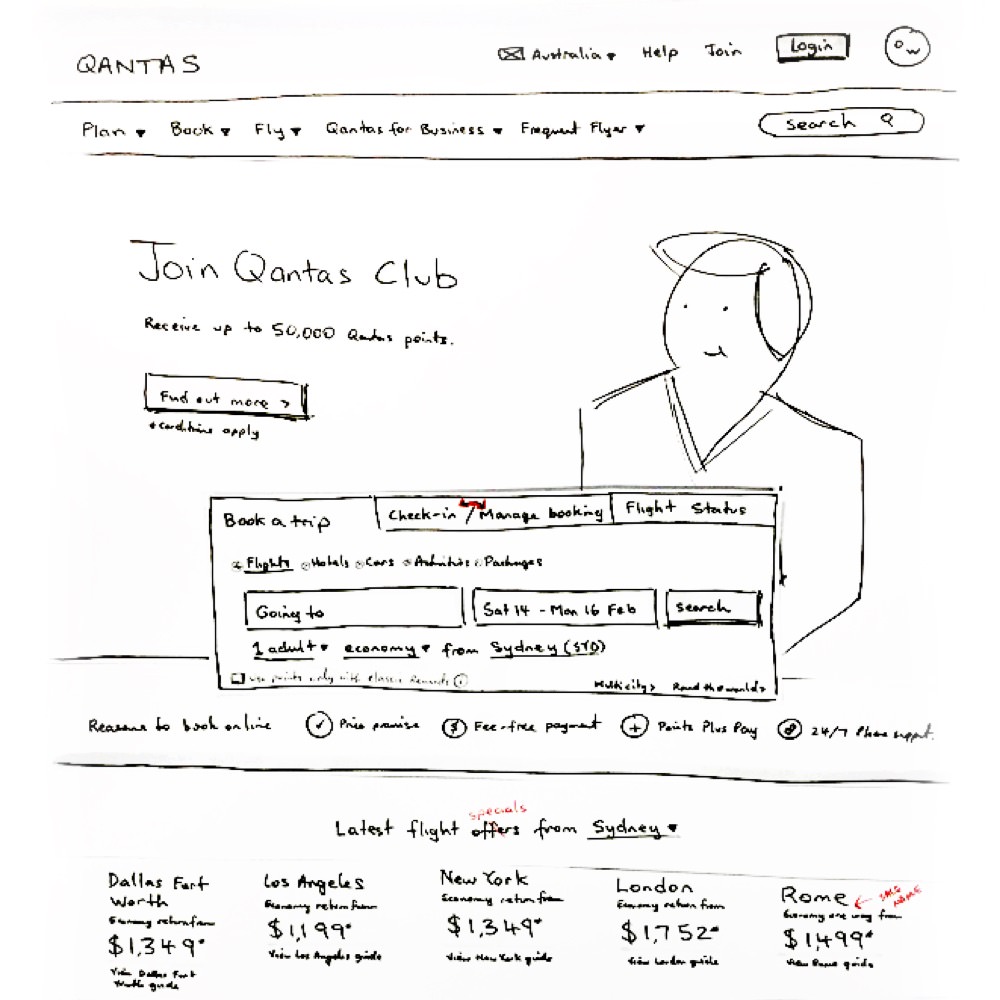 QANTAS
Australia Help Join Login OW
Plan Book Fly Qantas for Business Frequent Flyer search
Join Qantas Club
Receive up to 50,000 Qantas points.
Find out more >
*conditions apply
Book a trip Check-in / Manage booking Flight Status
Flights Hotels Cars Activities Packages
Going to Sat 14 - Mon 16 Feb search
1 adult economy from Sydney (SYD)
use points only with Classic Rewards i
Multicity> Round the world>
Reasons to book online Price promise $ Fee-free payment + Points Plus Pay 24/7 Phone support.
specials
Latest flight offers from Sydney
Dallas Fort
Worth
Economy return from
$1,349*
View Dallas Fort
Worth guide
Los Angeles
Economy return from
$1,199*
View Los Angeles guide
New York
Economy return from
$1,349*
View New York guide
London
Economy return from
$1,752*
View London guide
Rome ←
Economy one way from
$1499*
View Rome guide